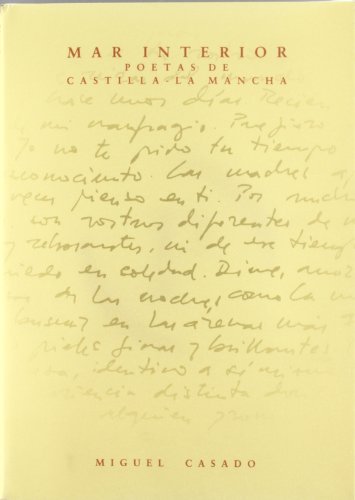 MAR INTERIOR
POETAS DE
CASTILLA-LA MANCHA
hace unos días Recién
mi naufragio. Prefiero
Yo no te pido tu tiempo
conocimiento. Las madres
veces pienso en ti. Por mucho
son rostros diferentes de
y rebosantes, ni de ese tiempo
miedo en soledad. Dime,
de las noches, como la
buscar en las arenas más
pieles finas y brillantes
idéntico a sí mismo
distinta
alguien
MIGUEL CASADO